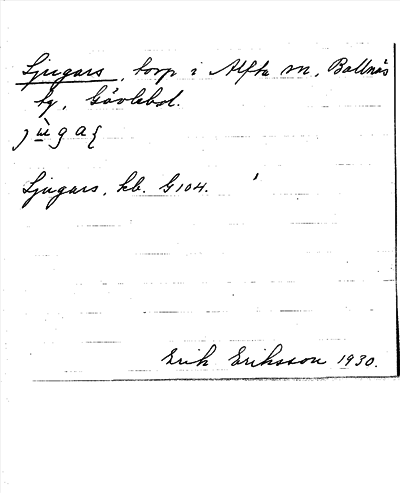 Ljugars, torp i Alfta sn, Bollnäs
kg, Gävlebol.
jùgaʃ
Ljugars, kb. G104.
Erik Eriksson 1930.